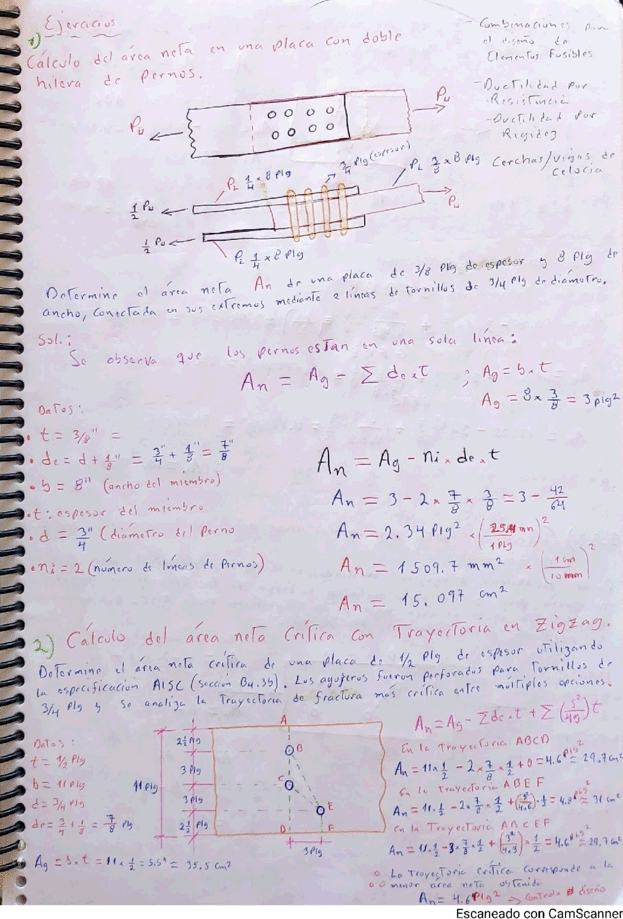 Ejercicios
1)
Cálculo del área neta en una placa con doble
hilera de Pernos.
Combinaciones para
el diseño de
Elementos Fusibles
- Ductilidad por
Resistencia
- Ductilidad por
Rigidez
Cerchas/vigas de
celocia
Pu
Pu
PL 1/4 x 8 Plg
3/4 Plg (espesor)
PL 3/8 x 8 Plg
1/2 Pu
Pu
1/2 Pu
PL 1/4 x 8 Plg
Determine el área neta An de una placa de 3/8 Plg de espesor y 8 Plg de
ancho, conectada en sus extremos mediante 2 líneas de tornillos de 3/4 Plg de diámetro.
Sol:
Se observa que los pernos estan en una sola línea:
An = Ag - Σ de.t ; Ag = b.t
Ag = 8 x 3/8 = 3 plg²
Datos:
• t = 3/8" =
• de = d + 1/8" = 3/4" + 1/8" = 7/8"
• b = 8" (ancho del miembro)
• t: espesor del miembro
• d = 3/4" (diámetro del Perno
• ni = 2 (número de líneas de Pernos)
An = Ag - ni x de x t
An = 3 - 2 x 7/8 x 3/8 = 3 - 42/64
An = 2.34 Plg² x (25.4 mm / 1 Plg)²
An = 1509.7 mm² x (1 cm / 10 mm)²
An = 15.097 cm²
2) Cálculo del área neta Crítica con Trayectoria en Zigzag.
Determine el área neta crítica de una placa de 1/2 Plg de espesor utilizando
la especificación AISC (sección B4.3b). Los agujeros fueron perforados para tornillos de
3/4 Plg y se analiza la Trayectoria de fractura mas crítica entre múltiples opciones.
Datos:
t = 1/2 Plg
b = 11 Plg
d = 3/4 Plg
de = 3/4 + 1/8 = 7/8 Plg
Ag = b.t = 11 x 1/2 = 5.5" = 35.5 cm²
11 Plg
2 1/2 Plg
3 Plg
3 Plg
2 1/2 Plg
A
B
C
E
D
F
3 Plg
An = Ag - Σ de.t + Σ (s²/4g) t
En la Trayectoria ABCD
An = 11 x 1/2 - 2 x 7/8 x 1/2 + 0 = 4.6 Plg² = 29.7 cm²
En la Trayectoria ABEF
An = 11 . 1/2 - 2 x 7/8 x 1/2 + (3²/4.6) . 1/2 = 4.8 Plg² = 31 cm²
En la Trayectoria ABCEF
An = 11 . 1/2 - 3 x 7/8 x 1/2 + (3²/4.3) x 1/2 = 4.6 Plg² = 29.7 cm²
La Trayectoria crítica corresponde a la
menor area neta obtenida
An = 4.6 Plg² → Controla el diseño
Escaneado con CamScanner